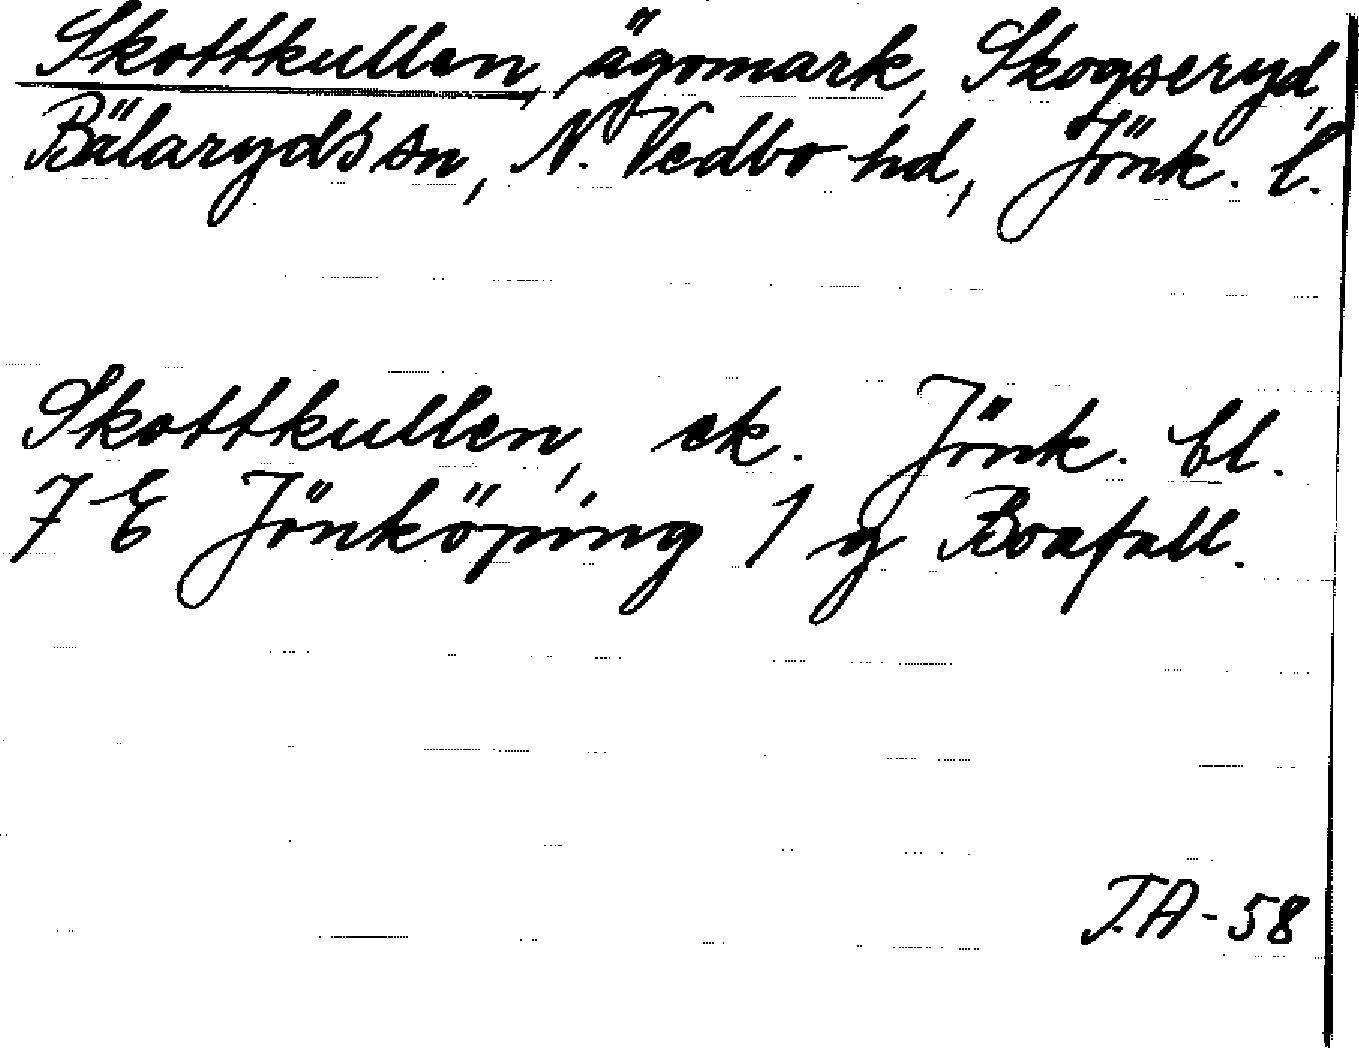 Skottkullen, ägomark, Skogseryd,
Bälaryds sn, N. Vedbo hd, Jönk. l.
Skottkullen, ek. Jönk. bl.
7 E Jönköping 1 g Boafall.
T.A-58